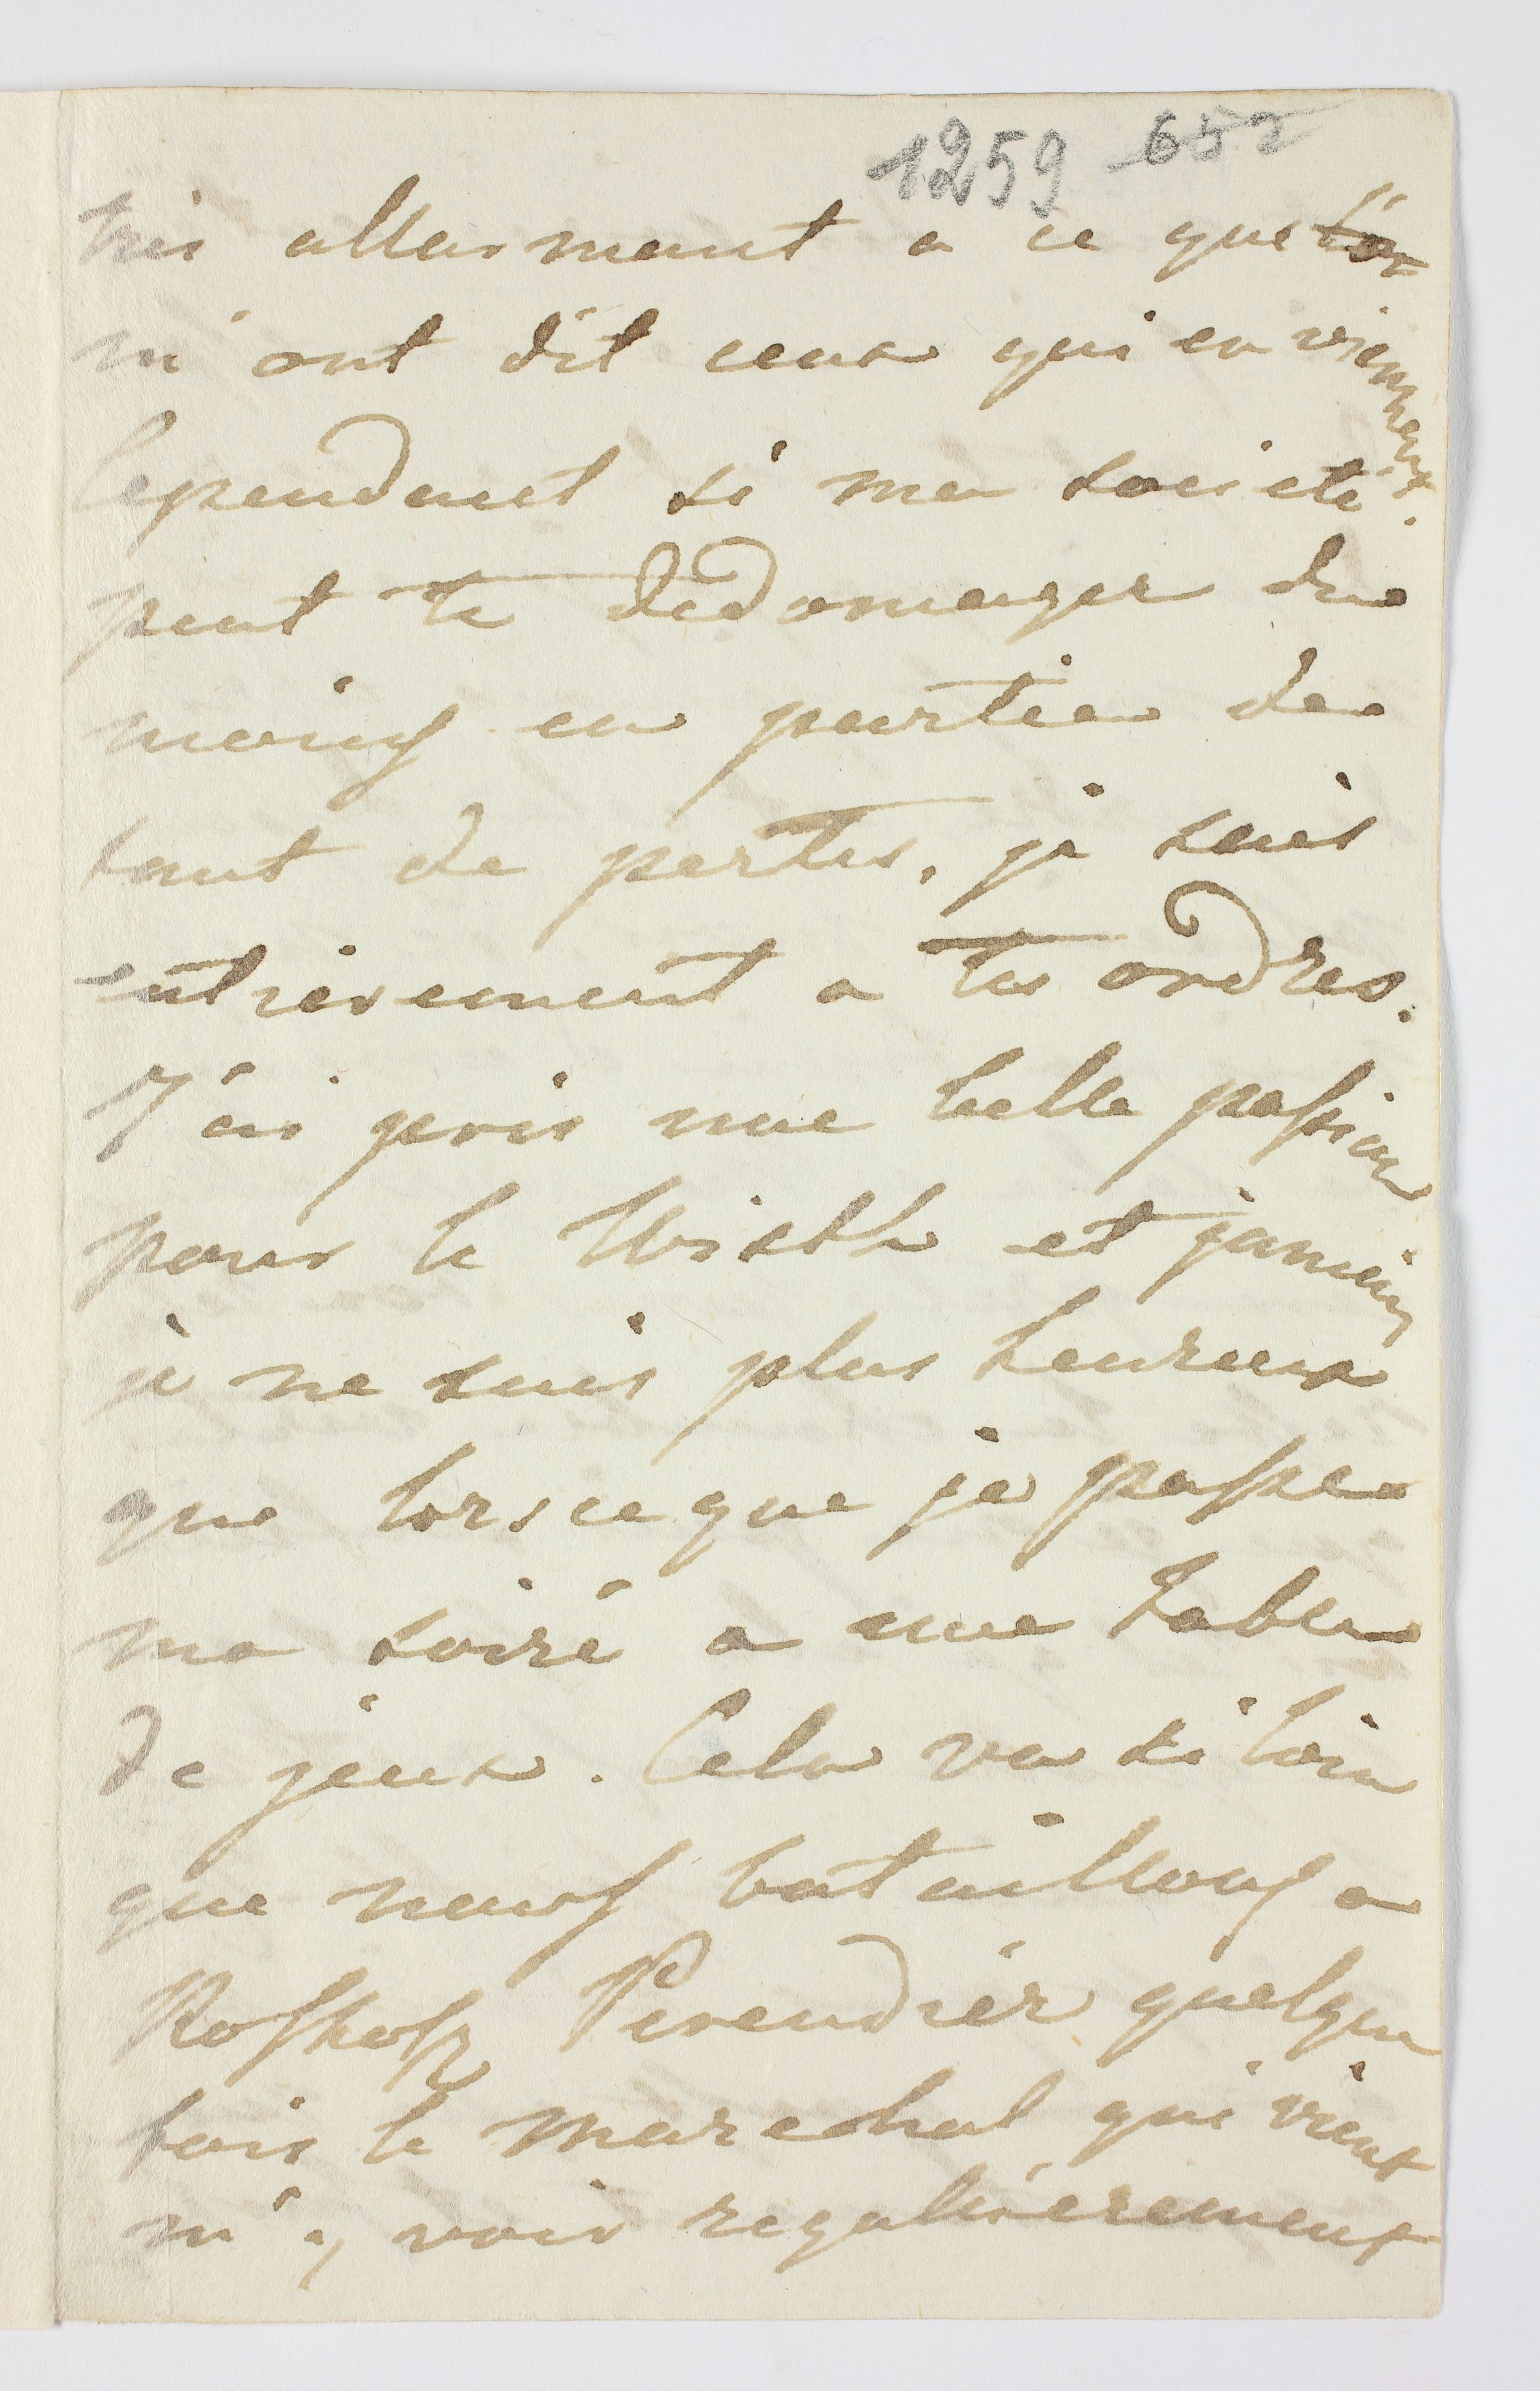 1259 652
tris allarmant a ce que
m'ont dit ceux qui en viennent.
Cependant si ma societé
peut te dedomager du
moins en partie de
tant de pertes, je suis
entierement a tes ordres.
J'ai pris une belle passion
pour le Wisth et jamais
je ne suis plus heureux
que lorsceque je passe
ma soiré a une table
de jeux. Cela va si loin
que nous bataillons a
quelque
fois le marechal qui vient
m'y voir regulièrement